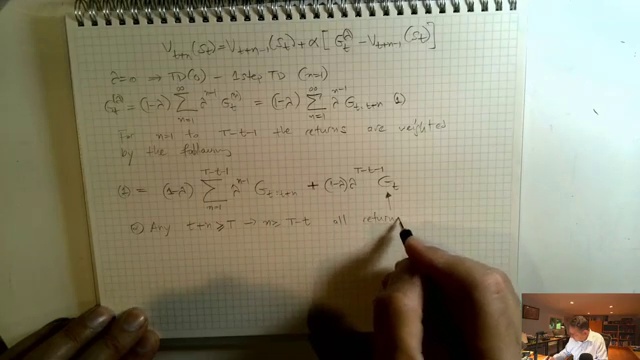 V_{t+n}(S_t) = V_{t+n-1}(S_t) + α [ G_t^λ - V_{t+n-1}(S_t) ]
λ=0 ⇒ TD(0) - 1 step TD (n=1)
G_t^{λ} = (1-λ) Σ_{n=1}^{∞} λ^{n-1} G_t^{(n)} = (1-λ) Σ_{n=1}^{∞} λ^{n-1} G_{t:t+n} (1)
For n=1 to T-t-1 the returns are weighted
by the following
(1) = (1-λ) Σ_{n=1}^{T-t-1} λ^{n-1} G_{t:t+n} + (1-λ) λ^{T-t-1} G_t
Any t+n ≥ T → n ≥ T-t all return